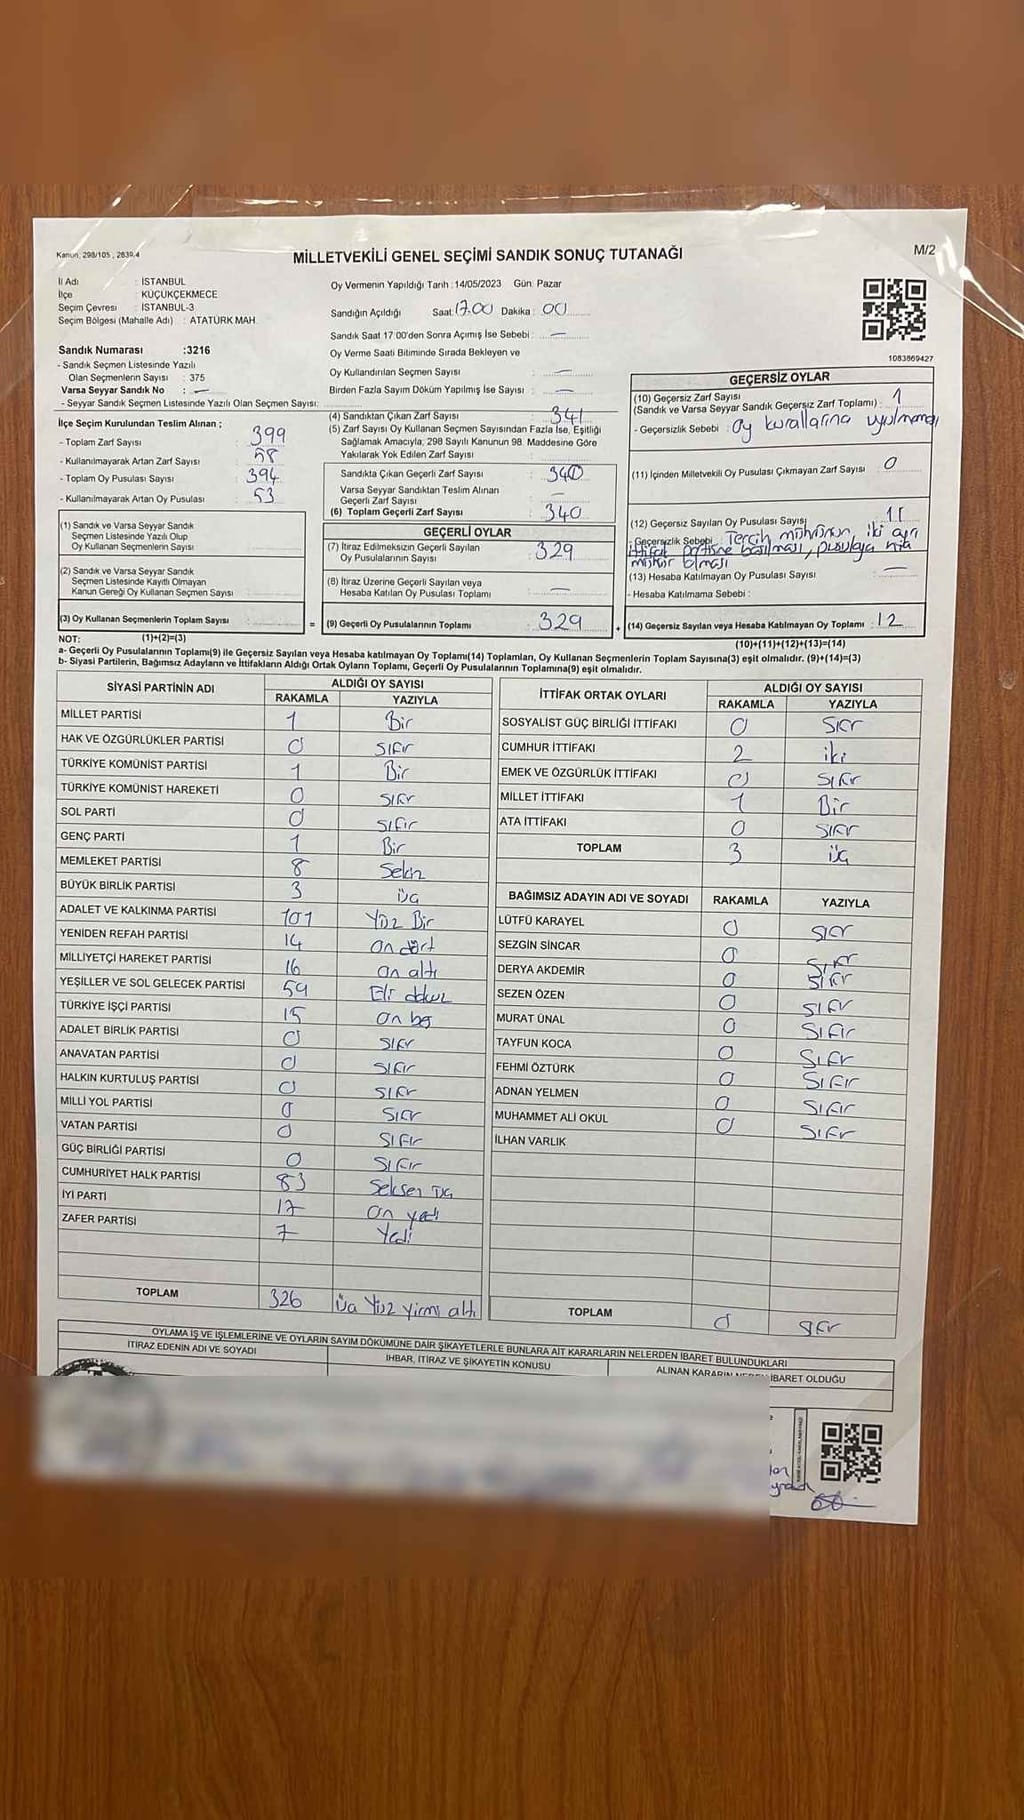 Kanun, 298/105 , 2839.4
MİLLETVEKİLİ GENEL SEÇİMİ SANDIK SONUÇ TUTANAĞI
M/2
İl Adı : İSTANBUL
İlçe : KÜÇÜKÇEKMECE
Seçim Çevresi : İSTANBUL-3
Seçim Bölgesi (Mahalle Adı) : ATATÜRK MAH.
Sandık Numarası :3216
- Sandık Seçmen Listesinde Yazılı
Olan Seçmenlerin Sayısı : 375
Varsa Seyyar Sandık No : —
- Seyyar Sandık Seçmen Listesinde Yazılı Olan Seçmen Sayısı:
İlçe Seçim Kurulundan Teslim Alınan ;
- Toplam Zarf Sayısı 399
- Kullanılmayarak Artan Zarf Sayısı 58
- Toplam Oy Pusulası Sayısı 394
- Kullanılmayarak Artan Oy Pusulası 53
(1) Sandık ve Varsa Seyyar Sandık
Seçmen Listesinde Yazılı Olup
Oy Kullanan Seçmenlerin Sayısı
(2) Sandık ve Varsa Seyyar Sandık
Seçmen Listesinde Kayıtlı Olmayan
Kanun Gereği Oy Kullanan Seçmen Sayısı
(3) Oy Kullanan Seçmenlerin Toplam Sayısı =
Oy Vermenin Yapıldığı Tarih :14/05/2023 Gün: Pazar
Sandığın Açıldığı Saat: 17.00 Dakika : 00
Sandık Saat 17:00'den Sonra Açımış İse Sebebi : —
Oy Verme Saati Bitiminde Sırada Bekleyen ve
Oy Kullandırılan Seçmen Sayısı : —
Birden Fazla Sayım Döküm Yapılmış İse Sayısı : —
(4) Sandıktan Çıkan Zarf Sayısı 341
(5) Zarf Sayısı Oy Kullanan Seçmen Sayısından Fazla İse, Eşitliği
Sağlamak Amacıyla, 298 Sayılı Kanunun 98. Maddesine Göre
Yakılarak Yok Edilen Zarf Sayısı
Sandıkta Çıkan Geçerli Zarf Sayısı 340
Varsa Seyyar Sandıktan Teslim Alınan
Geçerli Zarf Sayısı —
(6) Toplam Geçerli Zarf Sayısı 340
GEÇERLİ OYLAR
(7) İtiraz Edilmeksizin Geçerli Sayılan
Oy Pusulalarının Sayısı 329
(8) İtiraz Üzerine Geçerli Sayılan veya
Hesaba Katılan Oy Pusulası Toplamı —
(9) Geçerli Oy Pusulalarının Toplamı 329 +
1083869427
GEÇERSİZ OYLAR
(10) Geçersiz Zarf Sayısı
(Sandık ve Varsa Seyyar Sandık Geçersiz Zarf Toplamı) : 1
- Geçersizlik Sebebi : Oy kurallarına uyulmaması
(11) İçinden Milletvekili Oy Pusulası Çıkmayan Zarf Sayısı : 0
(12) Geçersiz Sayılan Oy Pusulası Sayısı 11
- Geçersizlik Sebebi : Tercih mührünün, iki ayrı
ittifak partisine basılması, pusulaya
mühür olması
(13) Hesaba Katılmayan Oy Pusulası Sayısı : —
- Hesaba Katılmama Sebebi :
(14) Geçersiz Sayılan veya Hesaba Katılmayan Oy Toplamı : 12
NOT: (1)+(2)=(3) (10)+(11)+(12)+(13)=(14)
a- Geçerli Oy Pusulalarının Toplamı(9) ile Geçersiz Sayılan veya Hesaba katılmayan Oy Toplamı(14) Toplamları, Oy Kullanan Seçmenlerin Toplam Sayısına(3) eşit olmalıdır. (9)+(14)=(3)
b- Siyasi Partilerin, Bağımsız Adayların ve İttifakların Aldığı Ortak Oyların Toplamı, Geçerli Oy Pusulalarının Toplamına(9) eşit olmalıdır.
SİYASİ PARTİNİN ADI ALDIĞI OY SAYISI
RAKAMLA YAZIYLA
MİLLET PARTİSİ 1 Bir
HAK VE ÖZGÜRLÜKLER PARTİSİ 0 sıfır
TÜRKİYE KOMÜNİST PARTİSİ 1 Bir
TÜRKİYE KOMÜNİST HAREKETİ 0 sıfır
SOL PARTİ 0 sıfır
GENÇ PARTİ 1 Bir
MEMLEKET PARTİSİ 8 Sekiz
BÜYÜK BİRLİK PARTİSİ 3 üç
ADALET VE KALKINMA PARTİSİ 101 Yüz Bir
YENİDEN REFAH PARTİSİ 14 on dört
MİLLİYETÇİ HAREKET PARTİSİ 16 on altı
YEŞİLLER VE SOL GELECEK PARTİSİ 59 Elli dokuz
TÜRKİYE İŞÇİ PARTİSİ 15 on beş
ADALET BİRLİK PARTİSİ 0 sıfır
ANAVATAN PARTİSİ 0 sıfır
HALKIN KURTULUŞ PARTİSİ 0 sıfır
MİLLİ YOL PARTİSİ 0 sıfır
VATAN PARTİSİ 0 sıfır
GÜÇ BİRLİĞİ PARTİSİ 0 sıfır
CUMHURİYET HALK PARTİSİ 83 Seksen üç
İYİ PARTİ 17 on yedi
ZAFER PARTİSİ 7 Yedi
TOPLAM 326 üç Yüz yirmi altı
İTTİFAK ORTAK OYLARI ALDIĞI OY SAYISI
RAKAMLA YAZIYLA
SOSYALİST GÜÇ BİRLİĞİ İTTİFAKI 0 sıfır
CUMHUR İTTİFAKI 2 iki
EMEK VE ÖZGÜRLÜK İTTİFAKI 0 sıfır
MİLLET İTTİFAKI 1 Bir
ATA İTTİFAKI 0 sıfır
TOPLAM 3 üç
BAĞIMSIZ ADAYIN ADI VE SOYADI RAKAMLA YAZIYLA
LÜTFÜ KARAYEL 0 sıfır
SEZGİN SİNCAR 0 sıfır
DERYA AKDEMİR 0 sıfır
SEZEN ÖZEN 0 sıfır
MURAT ÜNAL 0 sıfır
TAYFUN KOCA 0 sıfır
FEHMİ ÖZTÜRK 0 sıfır
ADNAN YELMEN 0 sıfır
MUHAMMET ALİ OKUL 0 sıfır
İLHAN VARLIK
TOPLAM 0 sıfır
OYLAMA İŞ VE İŞLEMLERİNE VE OYLARIN SAYIM DÖKÜMÜNE DAİR ŞİKAYETLERLE BUNLARA AİT KARARLARIN NELERDEN İBARET BULUNDUKLARI
İTİRAZ EDENİN ADI VE SOYADI İHBAR, İTİRAZ VE ŞİKAYETİN KONUSU ALINAN KARARIN NEDEN İBARET OLDUĞU